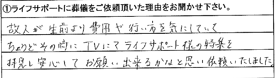 ①ライフサポートに葬儀をご依頼頂いた理由をお聞かせ下さい。
故人が生前より費用や行い方を気にしていて
ちょうどその時にTVにてライフサポート様の特集を
拝見し安心してお願い出来るかなと思い依頼いたしました